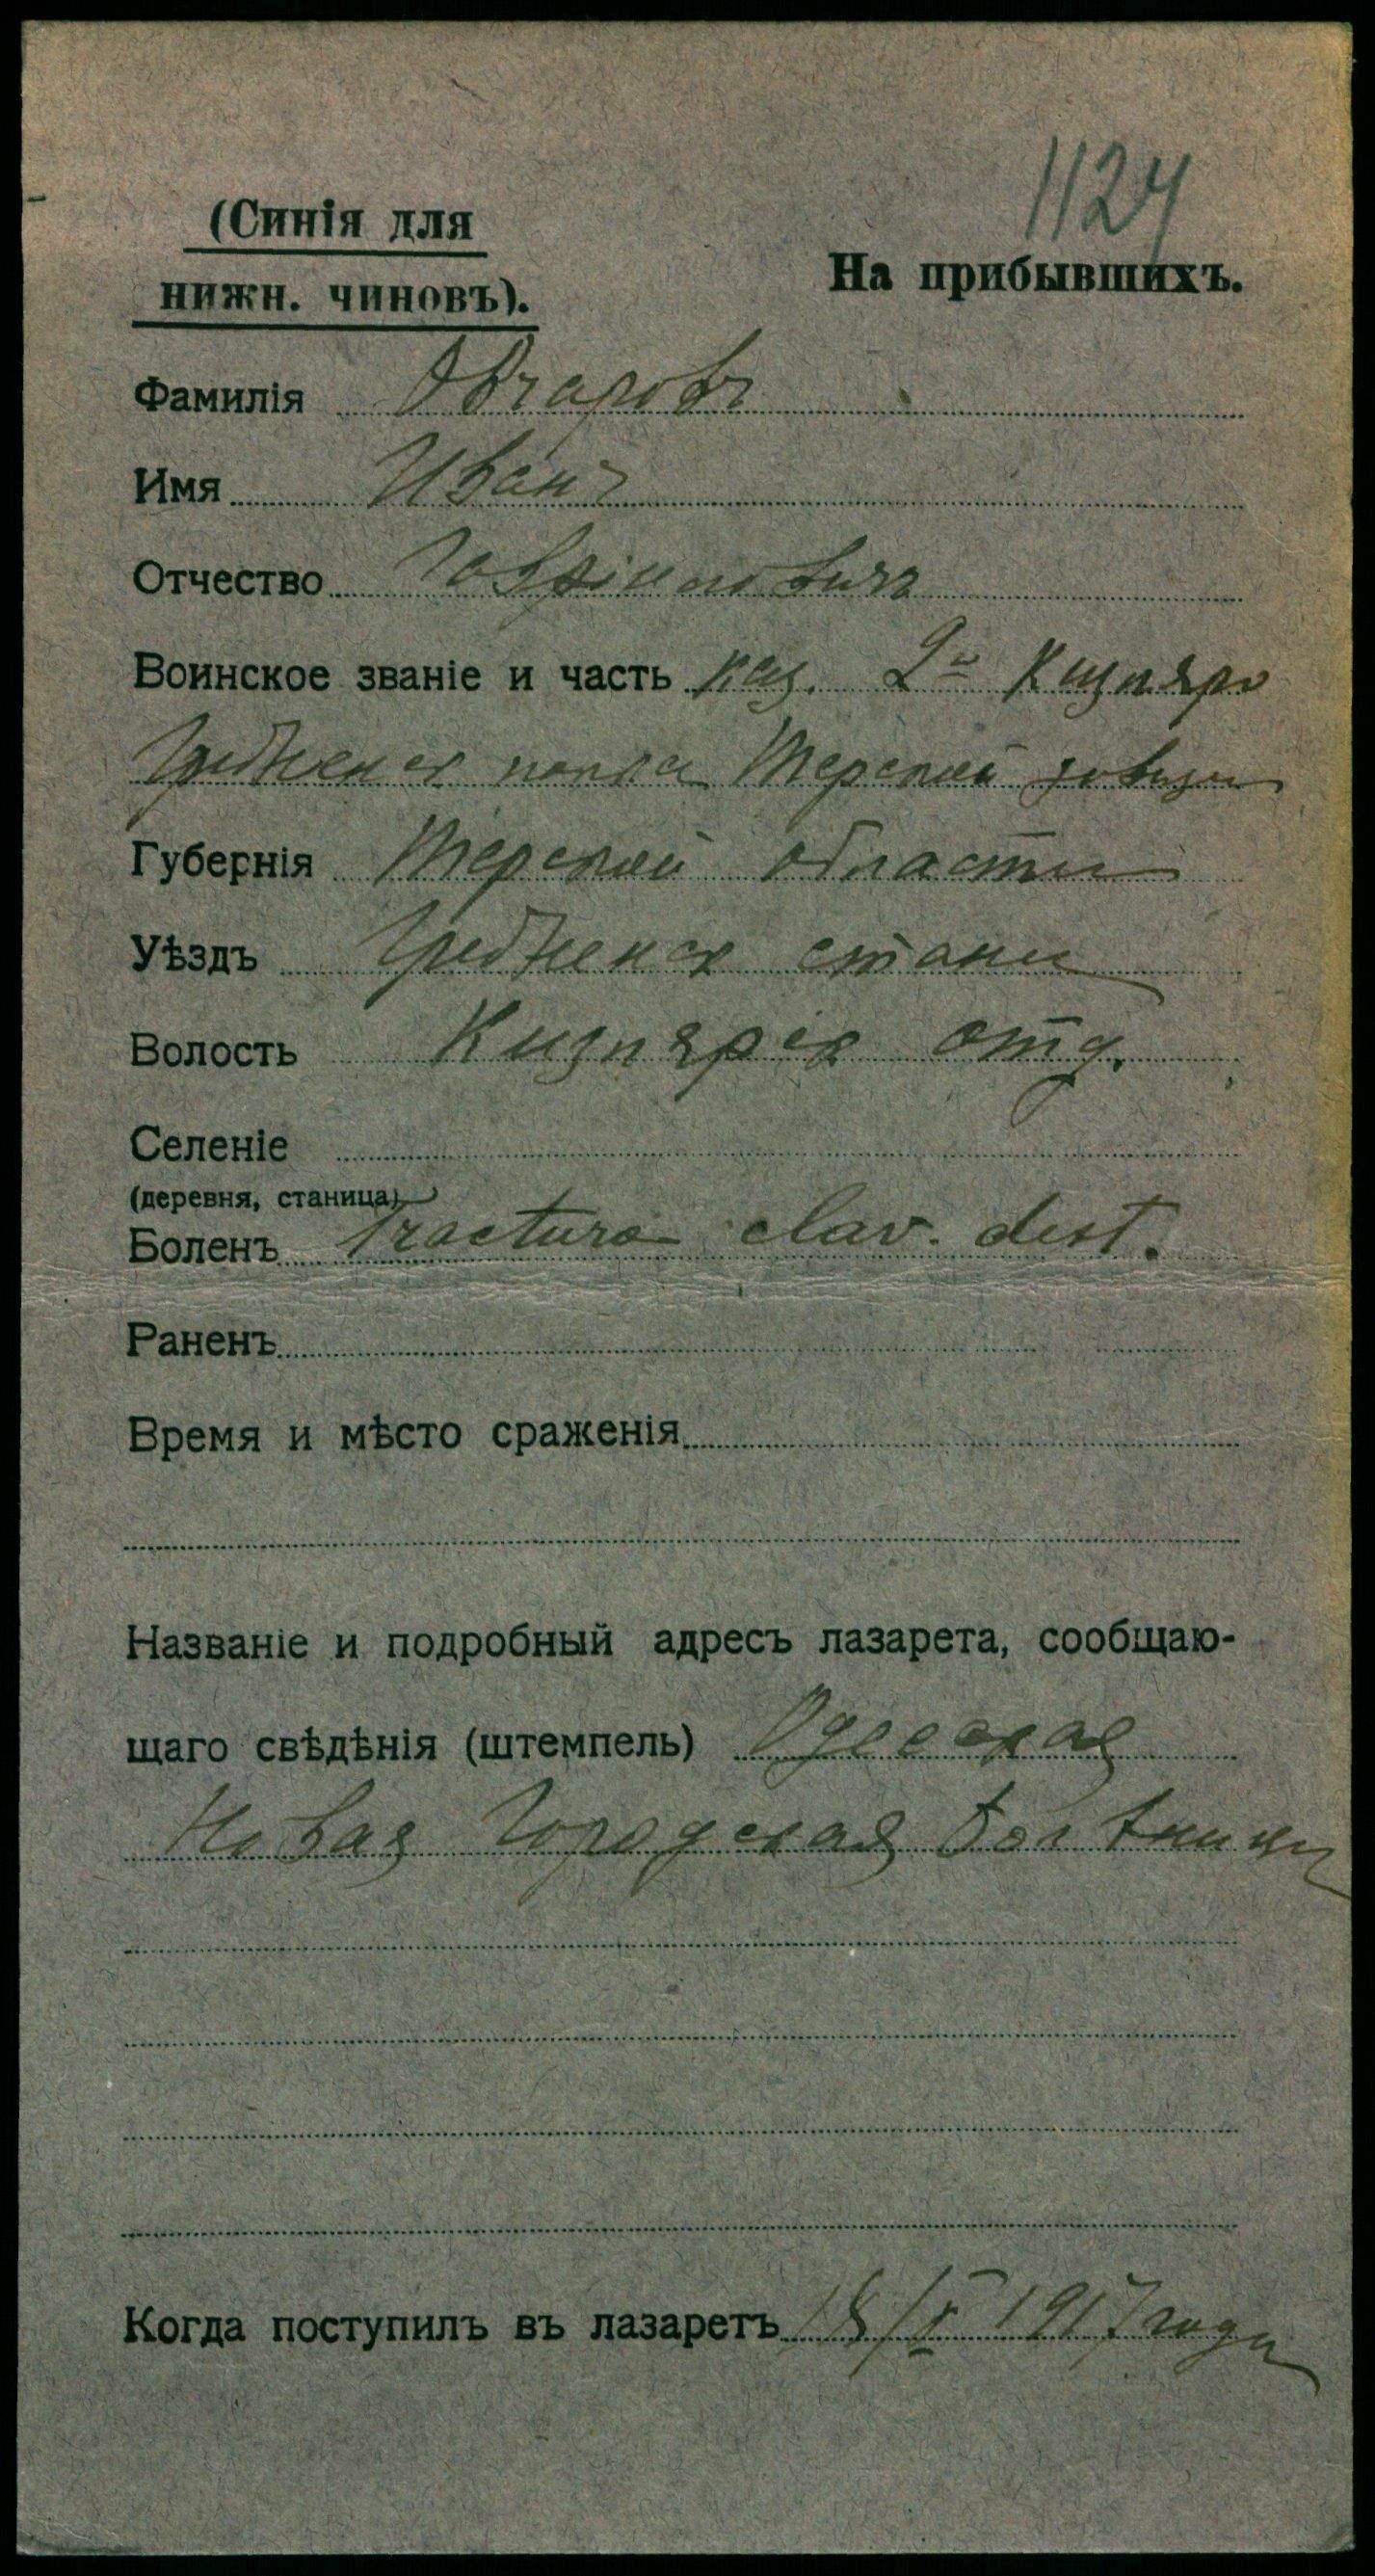 1124
(Синія для
нижн. чиновъ).
На прибывшихъ.
Фамилія Овчаровъ
Имя Иванъ
Отчество
Воинское званіе и часть каз. 2й Кизляро
Гребенск полка Терской дивизи
Губернія Терской области
Уѣздъ Гребенск стани
Волость Кизлярск отд.
Селеніе
(деревня, станица)
Боленъ Fractura clav. dext.
Раненъ
Время и мѣсто сраженія
Названіе и подробный адресъ лазарета, сообщаю-
щаго свѣдѣнія (штемпель) Одесская
Новая Городская Больница
Когда поступилъ въ лазаретъ 18/X 1917 года